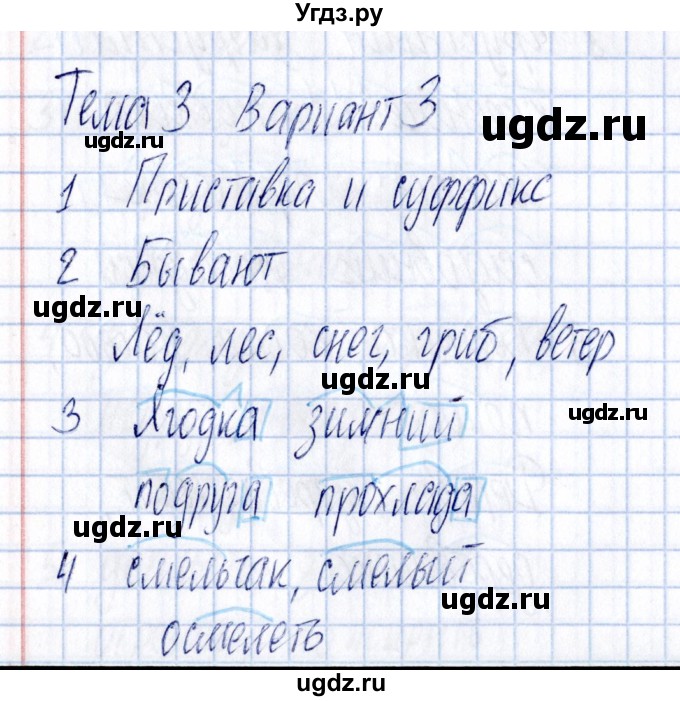 Угдз.ру
Тема 3 Вариант 3
ugdz.ru
ugdz.ru
1 Приставка и суффикс
2 Бывают
ugdz.ru
Лёд, лес, снег, гриб, ветер
ugdz.ru
3 Ягодка зимний
ugdz.ru
подруга прохлада
ugdz.ru
4 смельчак, смелый
ugdz.ru
осмелеть
ugdz.ru